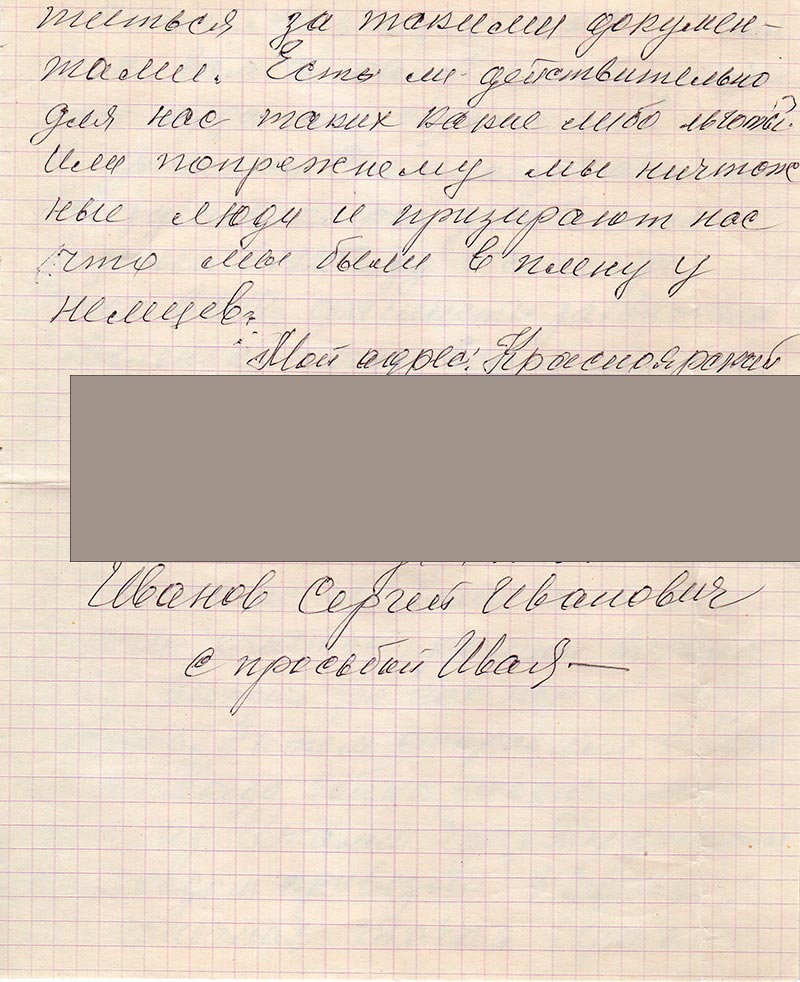 титься за такими докумен-
тами. Есть ли действительно
для нас таких какие либо льготы?
Или попрежнему мы ничтож
ные люди и призирают нас
что мы были в плену у
немцев?
Мой адрес: Красноярский
Иванов Сергей Иванович
с просьбой